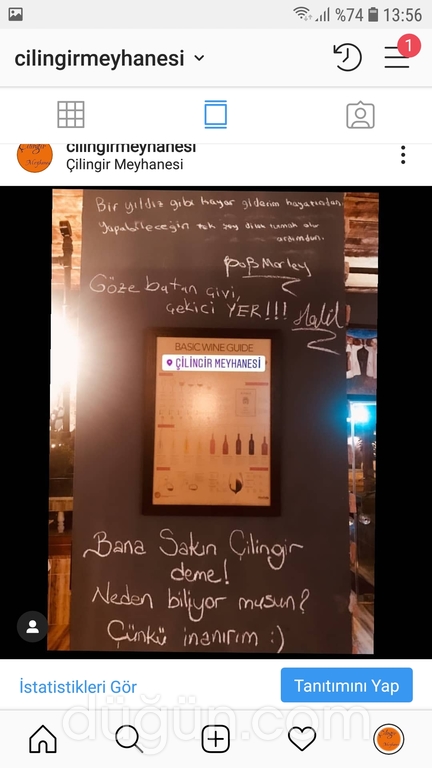 %74 13:56
cilingirmeyhanesi
1
cilingirmeyhanesi
Çilingir Meyhanesi
Bir yıldız gibi kayar giderim hayatından
Yapabileceğin tek şey dilek tutmak olur
ardımdan.
Bob Marley
Göze batan çivi,
çekici YER!!! Halil
BASIC WINE GUIDE
ÇİLİNGİR MEYHANESİ
Bana Sakın Çilingir
deme!
Neden biliyor musun?
Çünkü inanırım :)
İstatistikleri Gör
Tanıtımını Yap
düğün.com